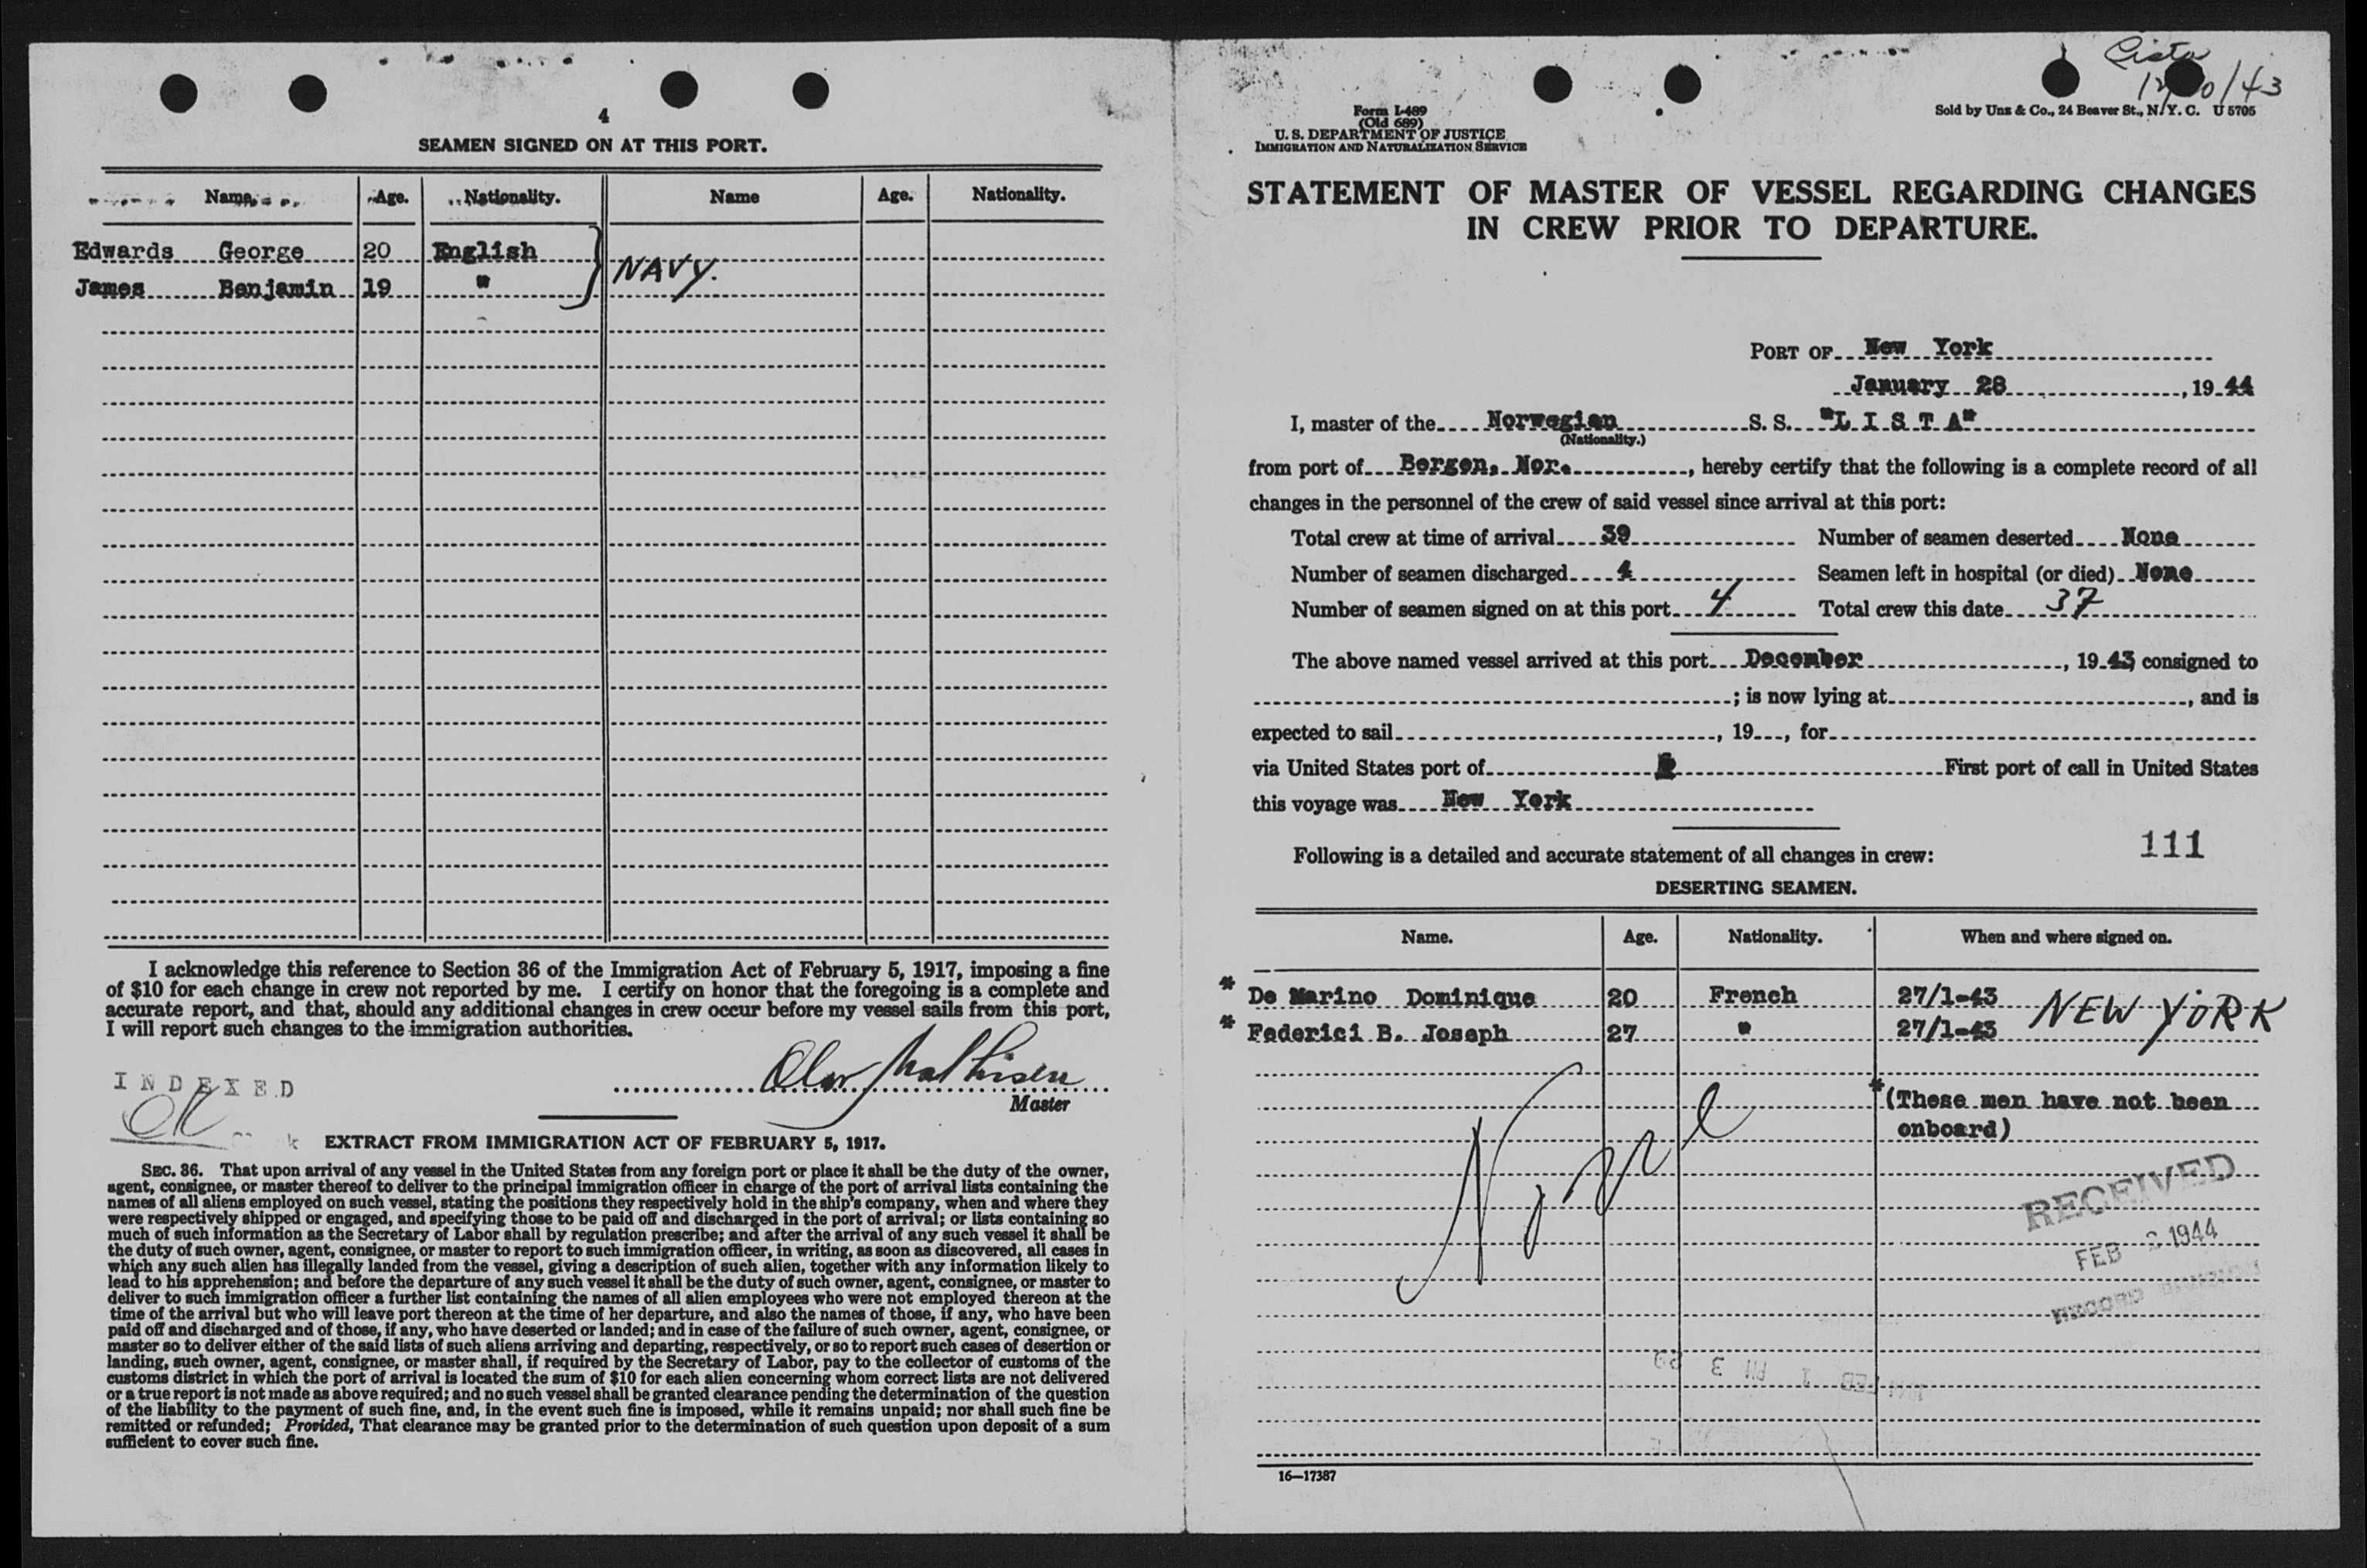 4
SEAMEN SIGNED ON AT THIS PORT.
Name. Age. Nationality. Name Age. Nationality.
Edwards George 20 English
James Benjamin 19 "
NAVY.
I acknowledge this reference to Section 36 of the Immigration Act of February 5, 1917, imposing a fine
of $10 for each change in crew not reported by me. I certify on honor that the foregoing is a complete and
accurate report, and that, should any additional changes in crew occur before my vessel sails from this port,
I will report such changes to the immigration authorities.
Olav Mathisen
Master
INDEXED
EXTRACT FROM IMMIGRATION ACT OF FEBRUARY 5, 1917.
SEC. 36. That upon arrival of any vessel in the United States from any foreign port or place it shall be the duty of the owner,
agent, consignee, or master thereof to deliver to the principal immigration officer in charge of the port of arrival lists containing the
names of all aliens employed on such vessel, stating the positions they respectively hold in the ship's company, when and where they
were respectively shipped or engaged, and specifying those to be paid off and discharged in the port of arrival; or lists containing so
much of such information as the Secretary of Labor shall by regulation prescribe; and after the arrival of any such vessel it shall be
the duty of such owner, agent, consignee, or master to report to such immigration officer, in writing, as soon as discovered, all cases in
which any such alien has illegally landed from the vessel, giving a description of such alien, together with any information likely to
lead to his apprehension; and before the departure of any such vessel it shall be the duty of such owner, agent, consignee, or master to
deliver to such immigration officer a further list containing the names of all alien employees who were not employed thereon at the
time of the arrival but who will leave port thereon at the time of her departure, and also the names of those, if any, who have been
paid off and discharged and of those, if any, who have deserted or landed; and in case of the failure of such owner, agent, consignee, or
master so to deliver either of the said lists of such aliens arriving and departing, respectively, or so to report such cases of desertion or
landing, such owner, agent, consignee, or master shall, if required by the Secretary of Labor, pay to the collector of customs of the
customs district in which the port of arrival is located the sum of $10 for each alien concerning whom correct lists are not delivered
or a true report is not made as above required; and no such vessel shall be granted clearance pending the determination of the question
of the liability to the payment of such fine, and, in the event such fine is imposed, while it remains unpaid; nor shall such fine be
remitted or refunded; Provided, That clearance may be granted prior to the determination of such question upon deposit of a sum
sufficient to cover such fine.
Lista
Form I-489
(Old 689)
U. S. DEPARTMENT OF JUSTICE
IMMIGRATION AND NATURALIZATION SERVICE
Sold by Unz & Co., 24 Beaver St., N. Y. C. U 5705
STATEMENT OF MASTER OF VESSEL REGARDING CHANGES
IN CREW PRIOR TO DEPARTURE.
PORT OF New York
January 28, 1944
I, master of the Norwegian S. S. "L I S T A"
(Nationality.)
from port of Bergen, Nor., hereby certify that the following is a complete record of all
changes in the personnel of the crew of said vessel since arrival at this port:
Total crew at time of arrival 39 Number of seamen deserted None
Number of seamen discharged 4 Seamen left in hospital (or died) None
Number of seamen signed on at this port 4 Total crew this date 37
The above named vessel arrived at this port December, 1943, consigned to
; is now lying at , and is
expected to sail , 19 , for
via United States port of First port of call in United States
this voyage was New York
Following is a detailed and accurate statement of all changes in crew:
111
DESERTING SEAMEN.
Name. Age. Nationality. When and where signed on.
* De Marino Dominique 20 French 27/1-43
* Federici B. Joseph 27 " 27/1-43
NEW YORK
* (These men have not been
onboard)
None
RECEIVED
FEB 2 1944
RECORD DIVISION
16—17387